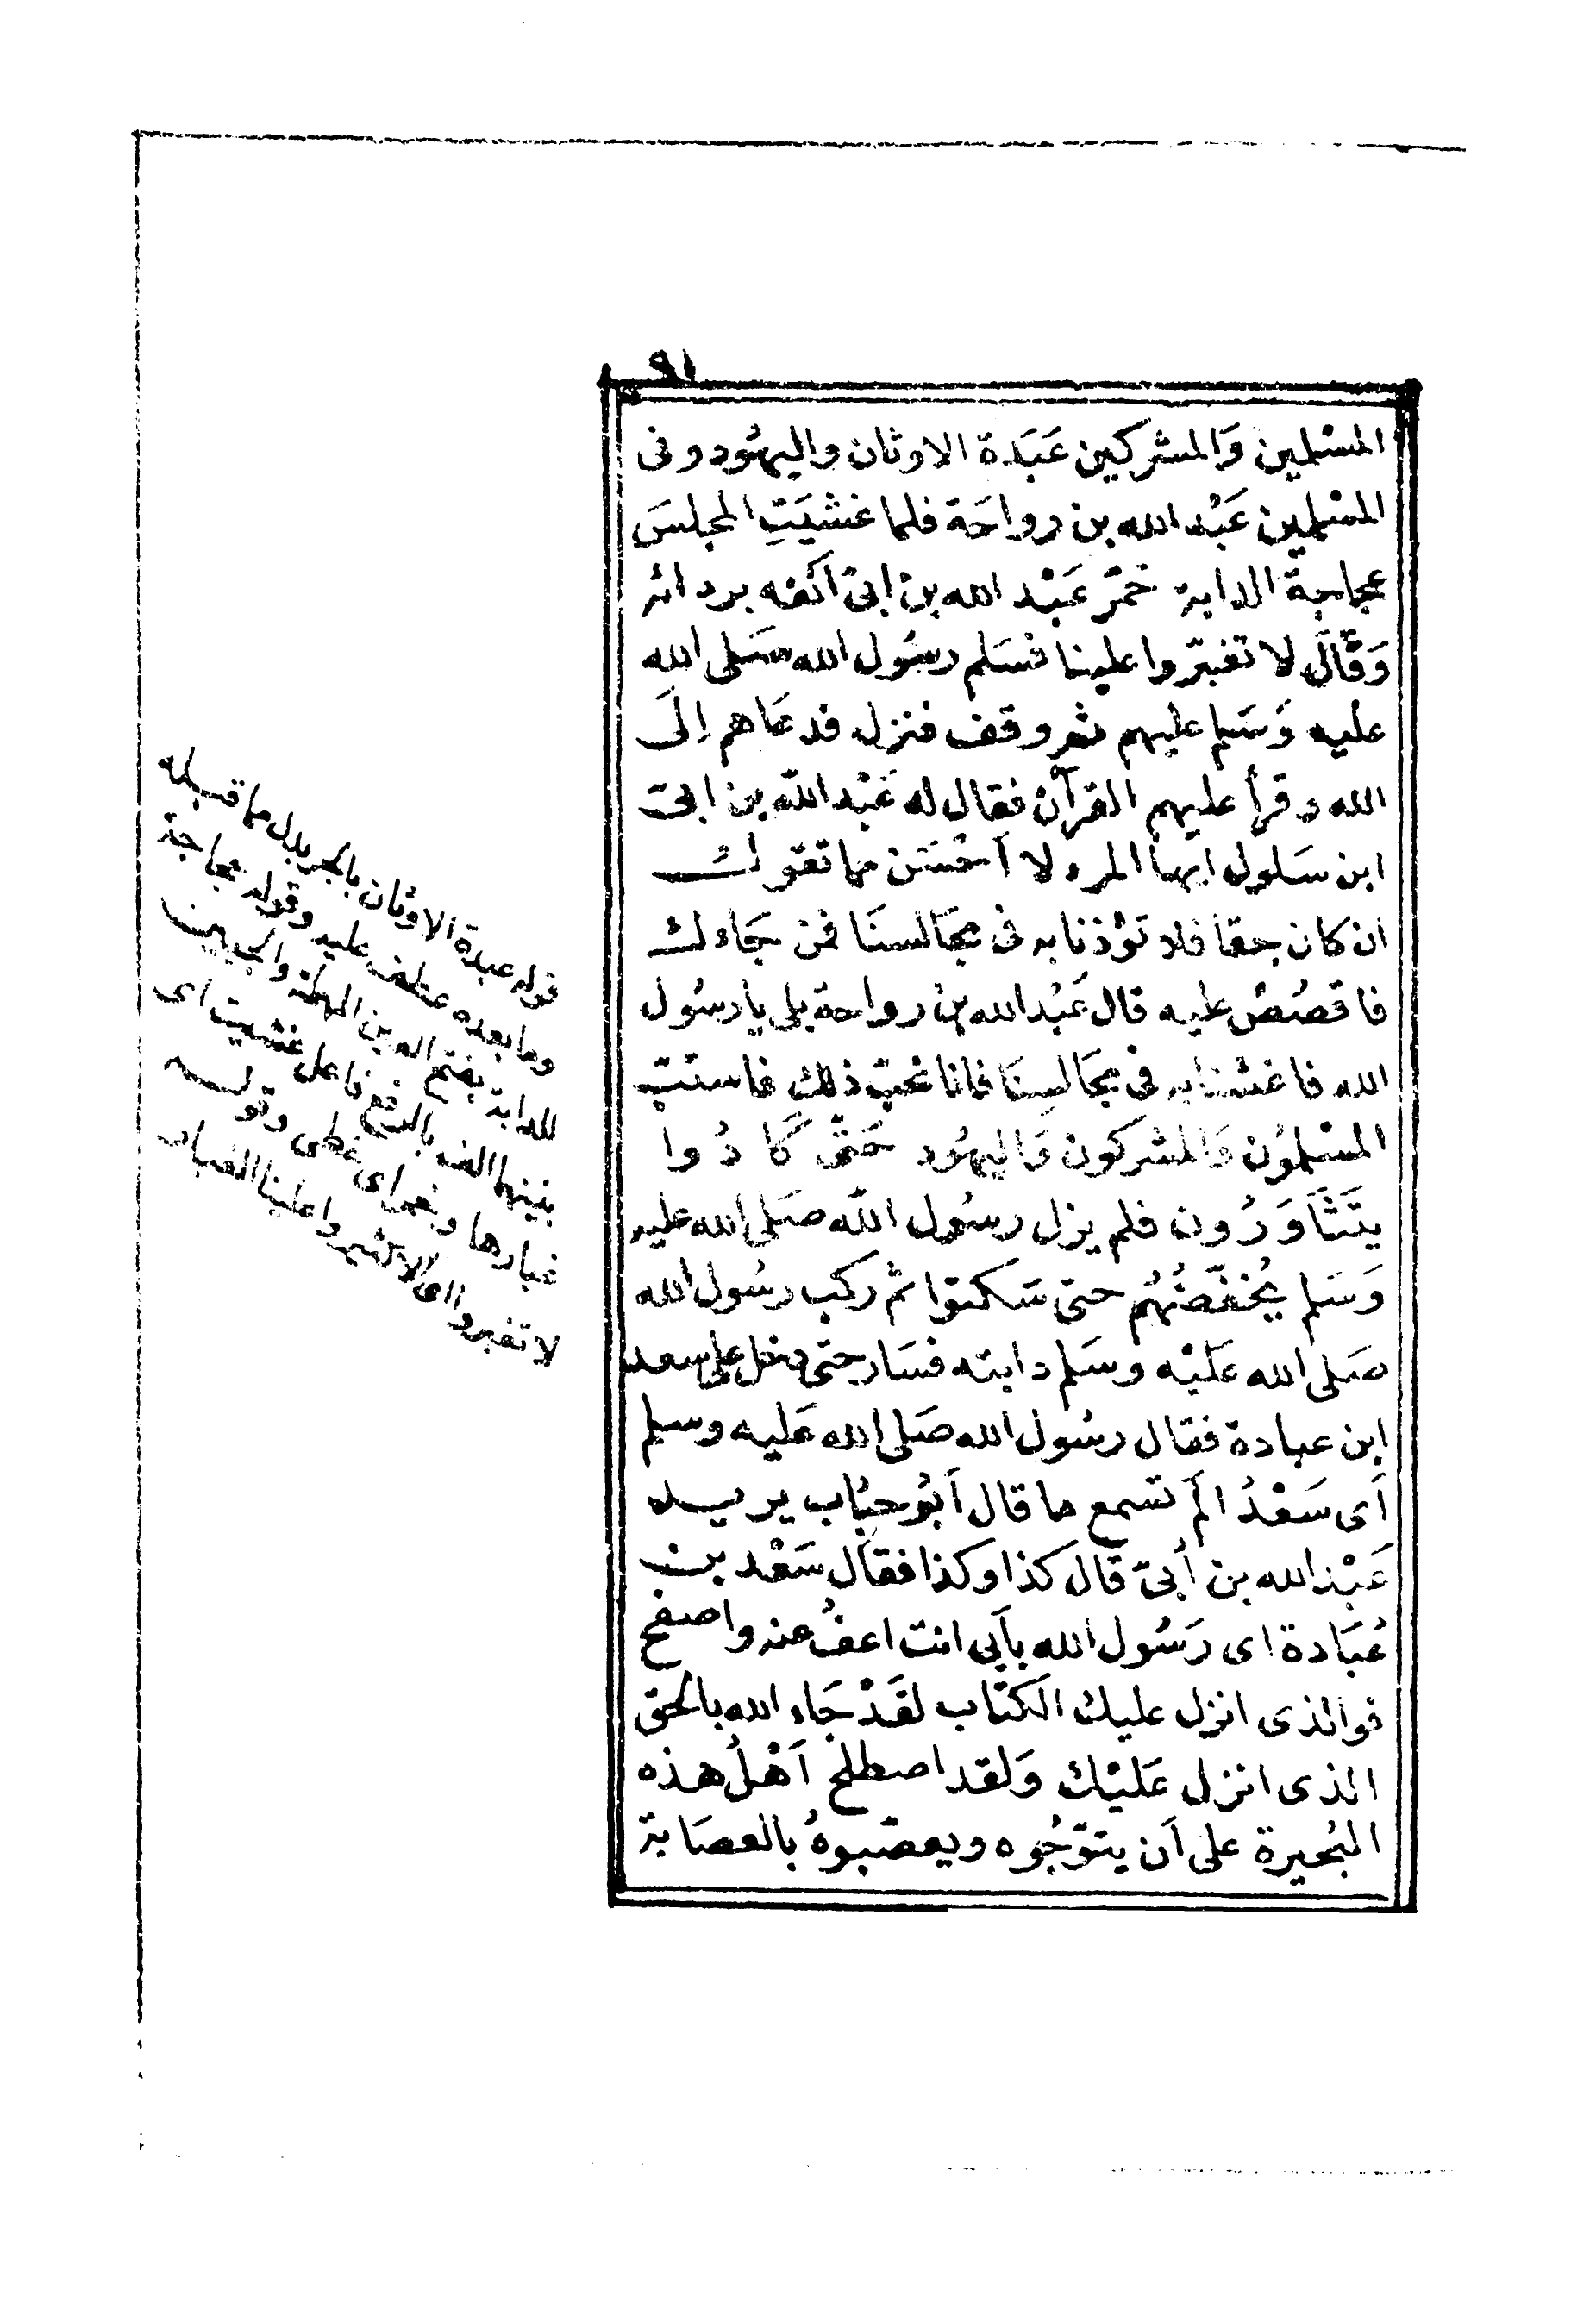 ٩١
المسْلمين وَالمشركين عَبَدة الاوثان واليهُود وفى
المسْلمين عَبْد الله بن رواحَة فلما غشيَتِ المجلسَ
عجاجة الدابة خمّر عَبْد الله بن ابىّ أنفه بردائه
وَقَالَ لا تغبّروا علينا فسَلم رسُول الله صَلى الله
عليه وَسَلم عليهم ثم وقف فنزل فدعَاهم اِلَى
الله وقرأ عليهم القرآن فقال له عَبْد الله بن ابىّ
ابن سَلول ايها المرء لا أحْسَن مما تقول
ان كان حقا فلا تؤذنا به فى مجَالسنَا فمن جَاءك
فاقصُصْ عليه قال عَبْد الله بن رواحة بلى يا رسُول
الله فاغشنا به فى مجَالسِنَا فانا نحبّ ذلك فاستبّ
المسْلمُون وَالمشركون وَاليهُود حَتّى كَادُوا
يتَثَاوَرُون فلم يزل رسُول الله صَلى الله عليه
وَسَلم يُخفّضُهُم حتى سَكتوا ثم ركب رسُول الله
صَلى الله عَليْه وسَلم دابته فسَار حتى دخل على سعد
ابن عبادة فقال رسُول الله صَلى الله عَليه وسلم
أى سَعْدُ الَم تسمع ما قال أبُو حبُاب يريد
عَبْد الله بن أبىّ قال كذا وكذا فقال سَعْد بن
عُبَادة اى رَسُول الله بأبى انت اعفُ عنه واصفح
فوالذى انزل عليك الكتاب لقَدْ جَاء الله بالحق
الذى انزل عَليْك وَلقد اصطلح أهْلُ هذه
البُحيرة على أن يتوّجُوه ويعصّبوهُ بالعصَابة
قوله عبدة الاوثان بالجر بدل مما قبله
وما بعده عطف عليه وقوله عجاجة
الدابة بفتح العين المهملة والجيمين
بينهما الف بالرفع فاعل غشيت اى
غبارها وخمر اى غطى وقوله
لا تغبروا اى لا تثيروا علينا الغبار